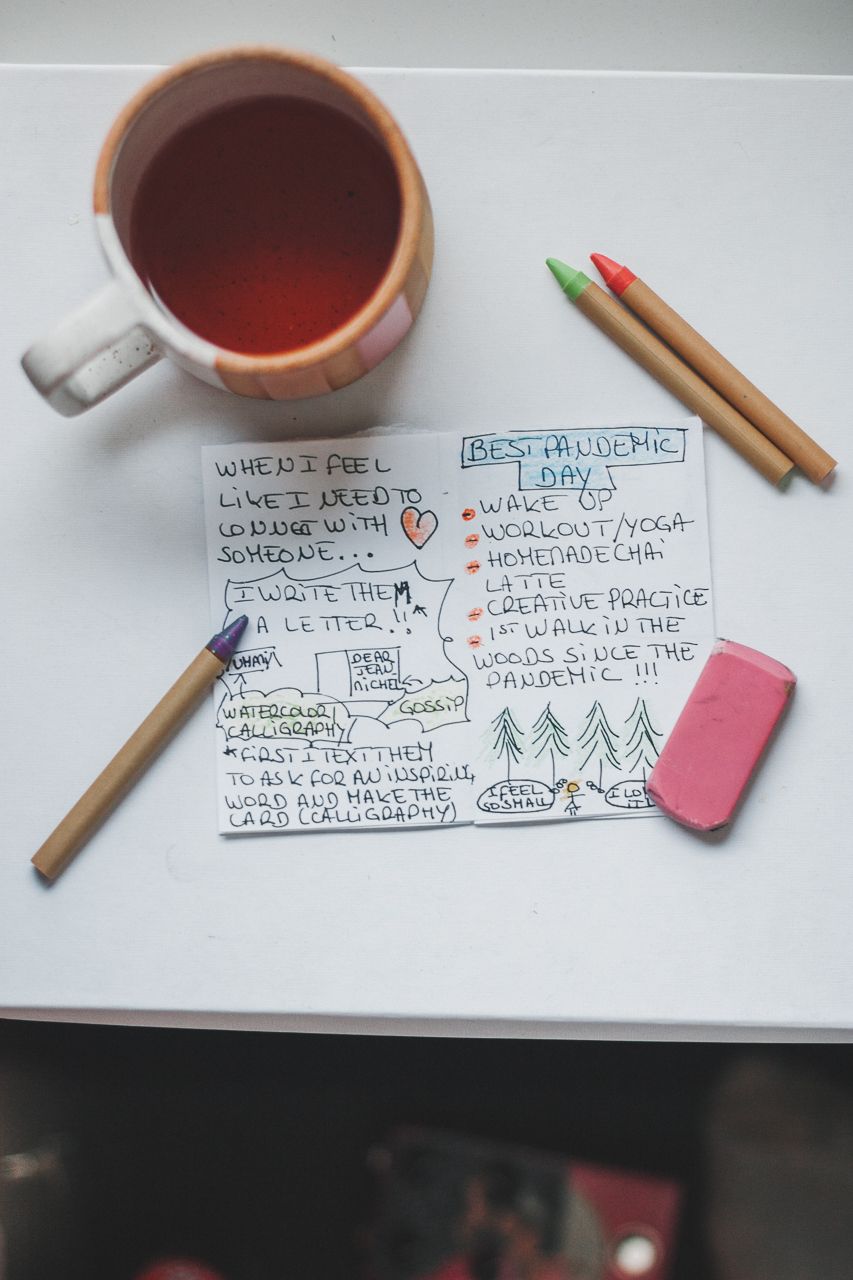 WHEN I FEEL
LIKE I NEED TO
CONNECT WITH
SOMEONE...
I WRITE THEM
A LETTER!!
DEAR
JEAN
MICHEL
WATERCOLOR/
CALLIGRAPHY
GOSSIP
*FIRST I TEXT THEM
TO ASK FOR AN INSPIRING
WORD AND MAKE THE
CARD (CALLIGRAPHY)
BEST PANDEMIC
DAY
WAKE UP
WORKOUT/YOGA
HOMEMADE CHAI
LATTE
CREATIVE PRACTICE
1ST WALK IN THE
WOODS SINCE THE
PANDEMIC !!!
I FEEL
SO SMALL
I
IT